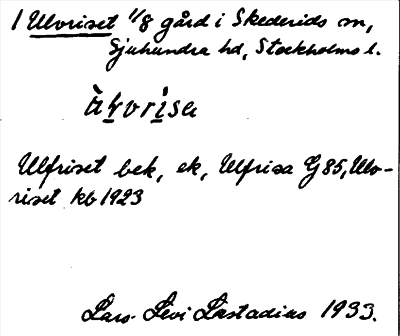 1 Ulvriset 1/8 gård i Skederids sn,
Sjuhundra hd, Stockholms l.
ùlvrisa
Ulfriset bek, ek, Ulfrisa G 85, Ulv-
riset kb 1923
Lars-Levi Læstadius 1933.